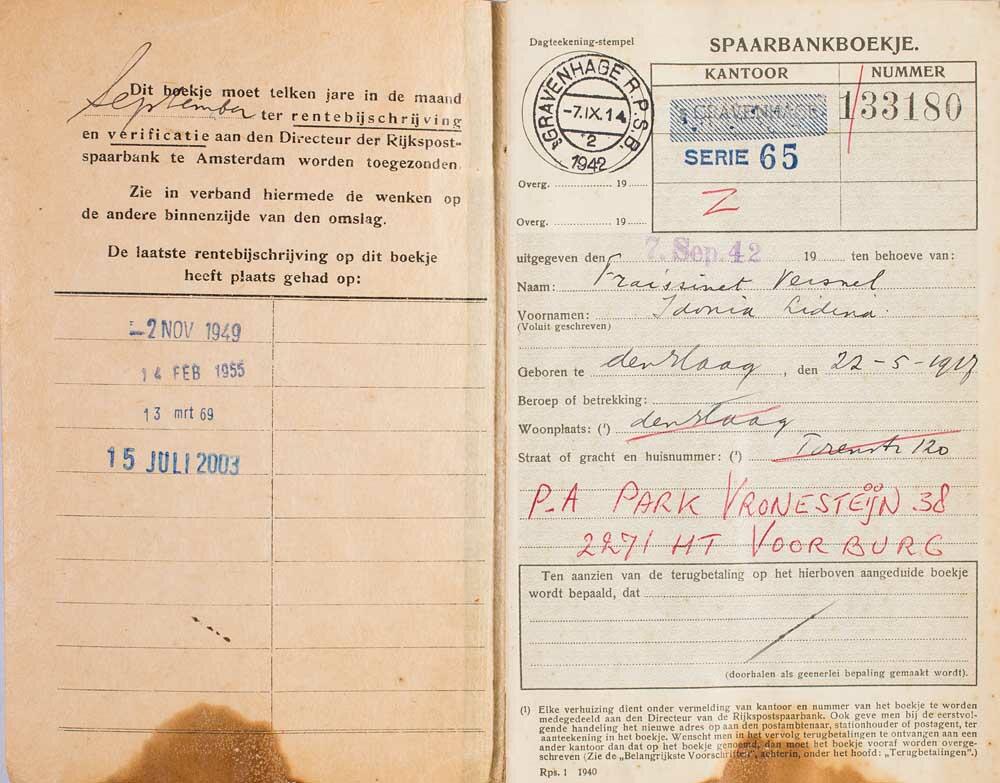 Dit boekje moet telken jare in de maand
September ter rentebijschrijving
en verificatie aan den Directeur der Rijkspost-
spaarbank te Amsterdam worden toegezonden.
Zie in verband hiermede de wenken op
de andere binnenzijde van den omslag.
De laatste rentebijschrijving op dit boekje
heeft plaats gehad op:
-2 NOV 1949
14 FEB 1955
13 mrt 69
15 JULI 2003
Dagteekening-stempel
SPAARBANKBOEKJE.
KANTOOR NUMMER
'S GRAVENHAGE R.P.S.B.
-7.IX.14
1942
'S GRAVENHAGE 133180
SERIE 65
Overg. 19
Z
Overg. 19
uitgegeven den 7. Sep. 42 19 ten behoeve van:
Naam: Fraissinet Versnel
Voornamen: Idonia Lidina
(Voluit geschreven)
Geboren te den Haag, den 22-5-1917
Beroep of betrekking:
Woonplaats: (¹) den Haag
Straat of gracht en huisnummer: (¹) 120
P-A PARK VRONESTEIJN 38
2271 HT VOORBURG
Ten aanzien van de terugbetaling op het hierboven aangeduide boekje
wordt bepaald, dat
(doorhalen als geenerlei bepaling gemaakt wordt).
(1) Elke verhuizing dient onder vermelding van kantoor en nummer van het boekje te worden
medegedeeld aan den Directeur van de Rijkspostspaarbank. Ook geve men bij de eerstvol-
gende handeling het nieuwe adres op aan den postambtenaar, stationhouder of postagent, ter
aanteekening in het boekje. Wenscht men in het vervolg terugbetalingen te ontvangen aan een
ander kantoor dan dat op het boekje genoemd, dan moet het boekje vooraf worden overge-
schreven (Zie de „Belangrijkste Voorschriften", achterin, onder het hoofd: „Terugbetalingen".)
Rps. 1 1940